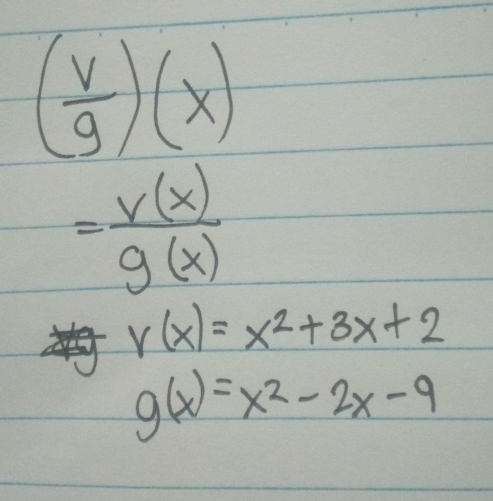 (v/g)(x)
= v(x)/g(x)
v(x) = x² + 3x + 2
g(x) = x² - 2x - 9